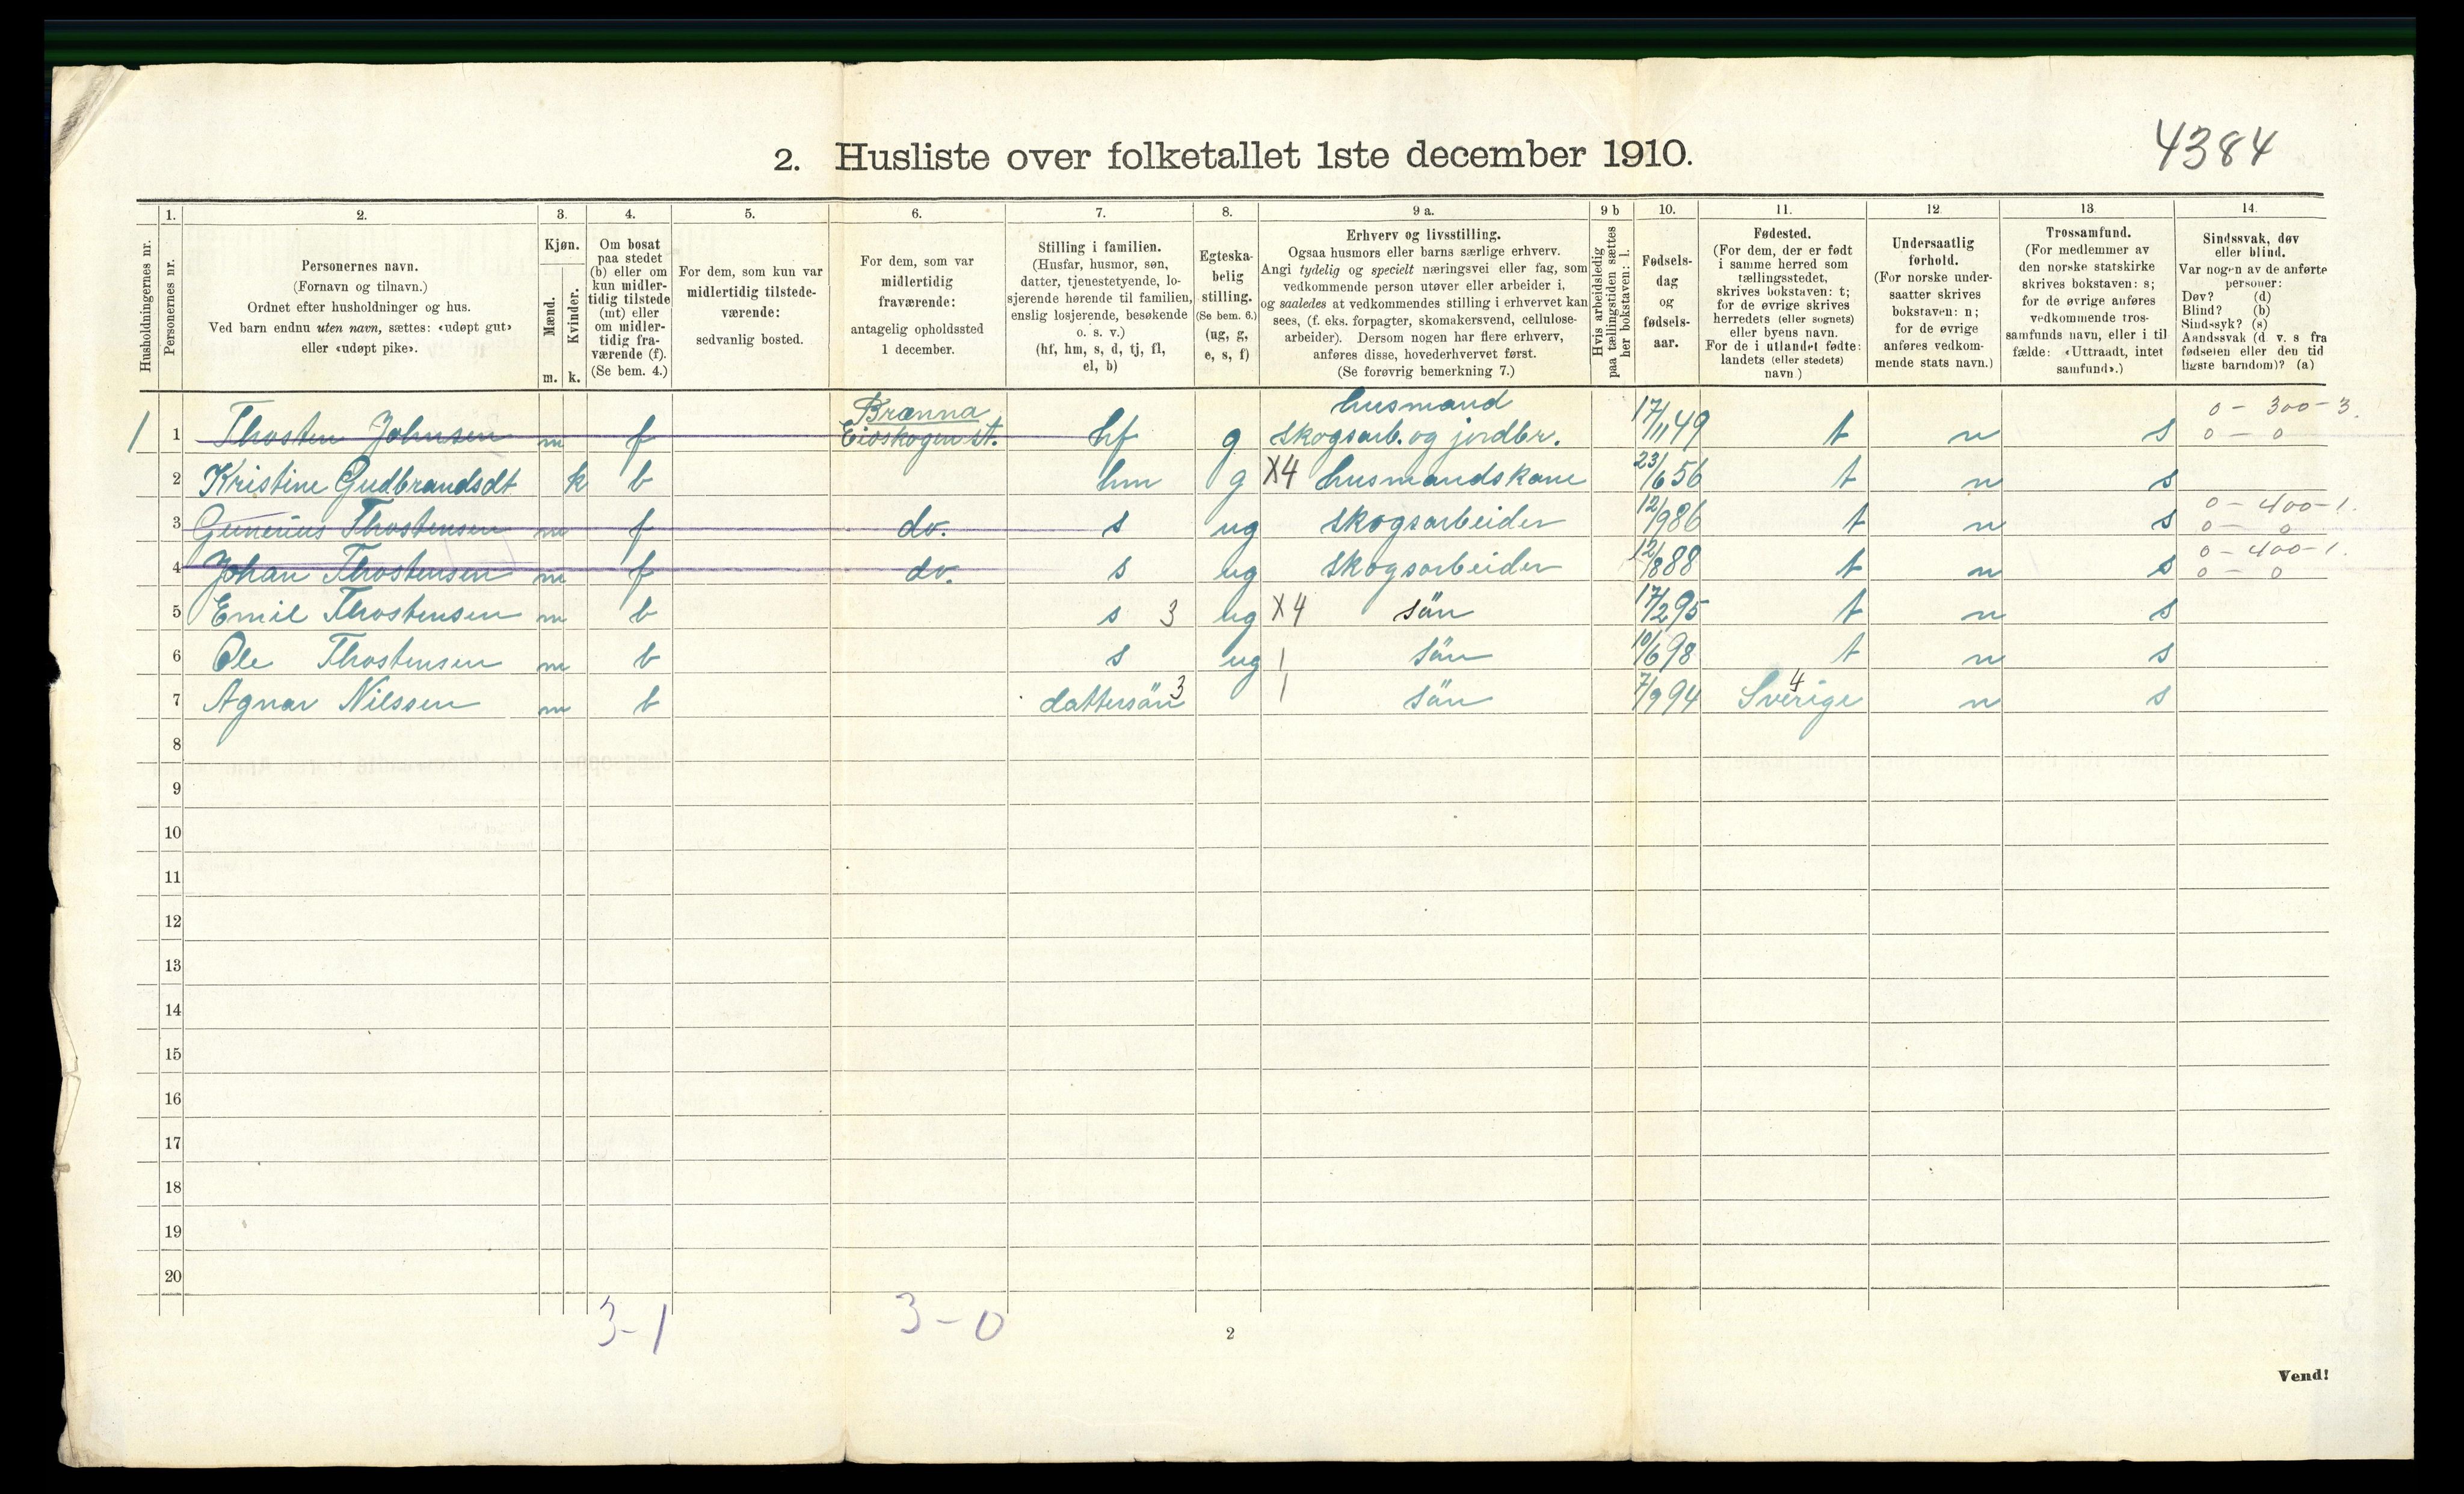 4384
2. Husliste over folketallet 1ste december 1910.
Husholdningernes nr.
1.
Personernes nr.
2.
Personernes navn.
(Fornavn og tilnavn.)
Ordnet efter husholdninger og hus.
Ved barn endnu uten navn, sættes: «udøpt gut»
eller «udøpt pike».
3.
Kjøn.
Mænd.
Kvinder.
m. k.
4.
Om bosat
paa stedet
(b) eller om
kun midler-
tidig tilstede
(mt) eller
om midler-
tidig fra-
værende (f).
(Se bem. 4.)
5.
For dem, som kun var
midlertidig tilstede-
værende:
sedvanlig bosted.
6.
For dem, som var
midlertidig
fraværende:
antagelig opholdssted
1 december.
7.
Stilling i familien.
(Husfar, husmor, søn,
datter, tjenestetyende, lo-
sjerende hørende til familien,
enslig losjerende, besøkende
o. s. v.)
(hf, hm, s, d, tj, fl,
el, b)
8.
Egteska-
belig
stilling.
(Se bem. 6.)
(ug, g,
e, s, f)
9 a.
Erhverv og livsstilling.
Ogsaa husmors eller barns særlige erhverv.
Angi tydelig og specielt næringsvei eller fag, som
vedkommende person utøver eller arbeider i,
og saaledes at vedkommendes stilling i erhvervet kan
sees, (f. eks. forpagter, skomakersvend, cellulose-
arbeider). Dersom nogen har flere erhverv,
anføres disse, hovederhvervet først.
(Se forøvrig bemerkning 7.)
9 b
Hvis arbeidsledig
paa tællingstiden sættes
her bokstaven: l.
10.
Fødsels-
dag
og
fødsels-
aar.
11.
Fødested.
(For dem, der er født
i samme herred som
tællingsstedet,
skrives bokstaven: t;
for de øvrige skrives
herredets (eller sognets)
eller byens navn.
For de i utlandet fødte:
landets (eller stedets)
navn)
12.
Undersaatlig
forhold.
(For norske under-
saatter skrives
bokstaven: n;
for de øvrige
anføres vedkom-
mende stats navn.)
13.
Trossamfund.
(For medlemmer av
den norske statskirke
skrives bokstaven: s;
for de øvrige anføres
vedkommende tros-
samfunds navn, eller i til
fælde: «Uttraadt, intet
samfund».)
14.
Sindssvak, døv
eller blind.
Var nogen av de anførte
personer:
Døv? (d)
Blind? (b)
Sindssyk? (s)
Aandssvak (d. v. s. fra
fødselen eller den tid
ligste barndom)? (a)
Brænna husmand 0 – 300 – 3.
1 1 Thosten Johnsen m f Eidskogen st. hf g skogsarb. og jordbr. 17/11 49 t n s 0 – 0
2 Kristine Gudbrandsdt k b hm g X4 husmandskone 23/6 56 t n s
0 – 400 – 1.
3 Gunerius Thostensen m f do. s ug skogsarbeider 12/9 86 t n s 0 – 0
0 – 400 – 1.
4 Johan Thostensen m f do. s ug skogsarbeider 12/8 88 t n s 0 – 0
5 Emil Thostensen m b s 3 ug X4 sön 17/2 95 t n s
6 Ole Thostensen m b s ug 1 sön 10/6 98 t n s
7 Agnar Nilssen m b dattersön 3 1 sön 7/9 94 Sverige 4 n s
8
9
10
11
12
13
14
15
16
17
18
19
20
3-1 3-0
2
Vend!